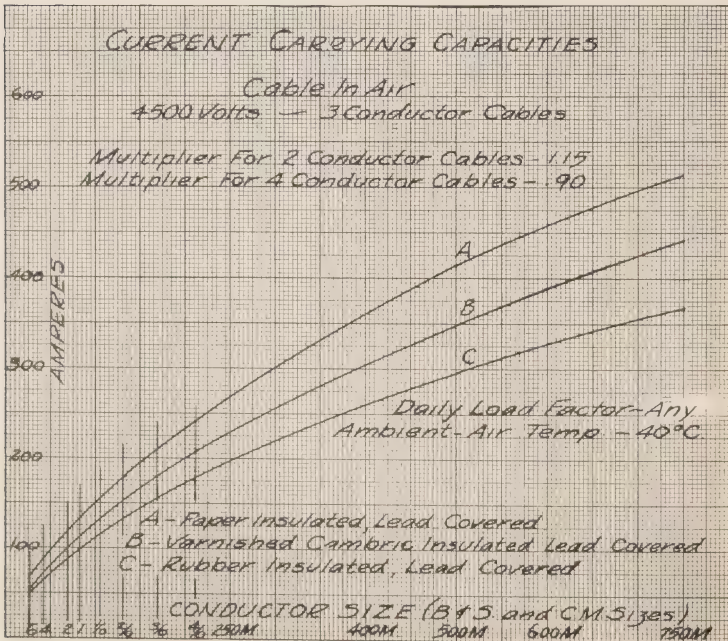 CURRENT CARRYING CAPACITIES
Cable In Air
4500 Volts — 3 Conductor Cables
Multiplier For 2 Conductor Cables - 1.15
Multiplier For 4 Conductor Cables - .90
600
500
400
300
200
100
AMPERES
A
B
C
Daily Load Factor-Any
Ambient-Air Temp - 40°C.
A - Paper Insulated, Lead Covered
B - Varnished Cambric Insulated Lead Covered
C - Rubber Insulated, Lead Covered
CONDUCTOR SIZE (B&S. and CM Sizes)
6 4 2 1 1/0 2/0 3/0 4/0 250M 400M 500M 600M 750M